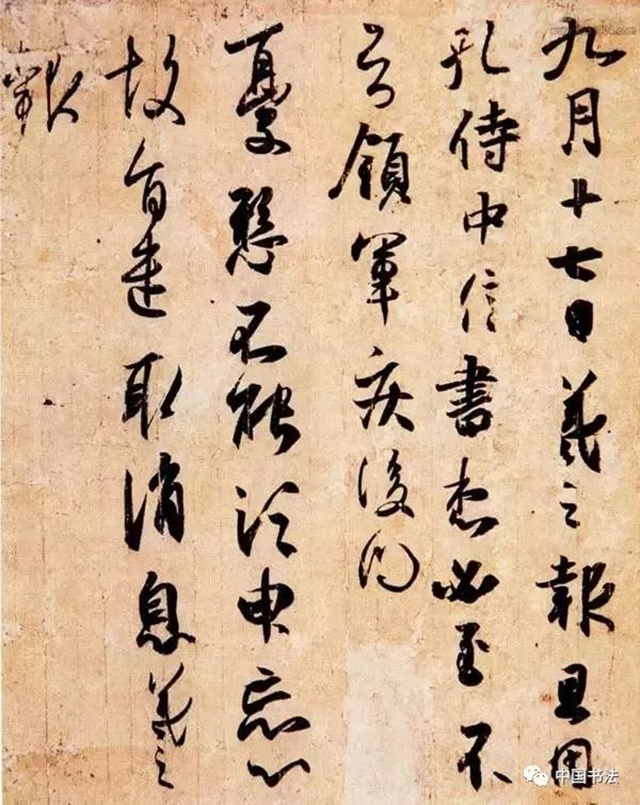 九月十七日羲之報且因
孔侍中信書想必至不
知領軍疾後問
憂懸不能須臾忘心
故旨遣取消息羲之
報
中国书法